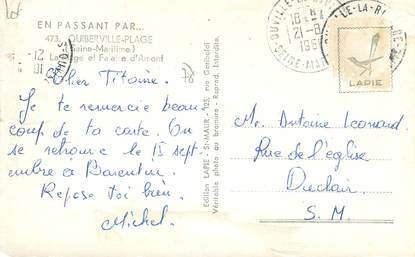 EN PASSANT PAR...
473. QUIBERVILLE-PLAGE
(Seine-Maritime)
La Plage et Falaise d'Amont
Cher Titoine.
Je te remercie beau
coup de ta carte. On
se retrouve le 15 sept-
embre à Barentin.
Repose toi bien.
Michel.
78
Edition LAPIE - St-MAUR - 125, rue Garibaldi
Véritable photo au bromure - Reprod. interdite
OUVILLE-LA-RIVIERE
18 H
21-8
SEINE-MARITIME
LAPIE
Mr. Antoine Leonard
Rue de l'église
Duclair
S. M.